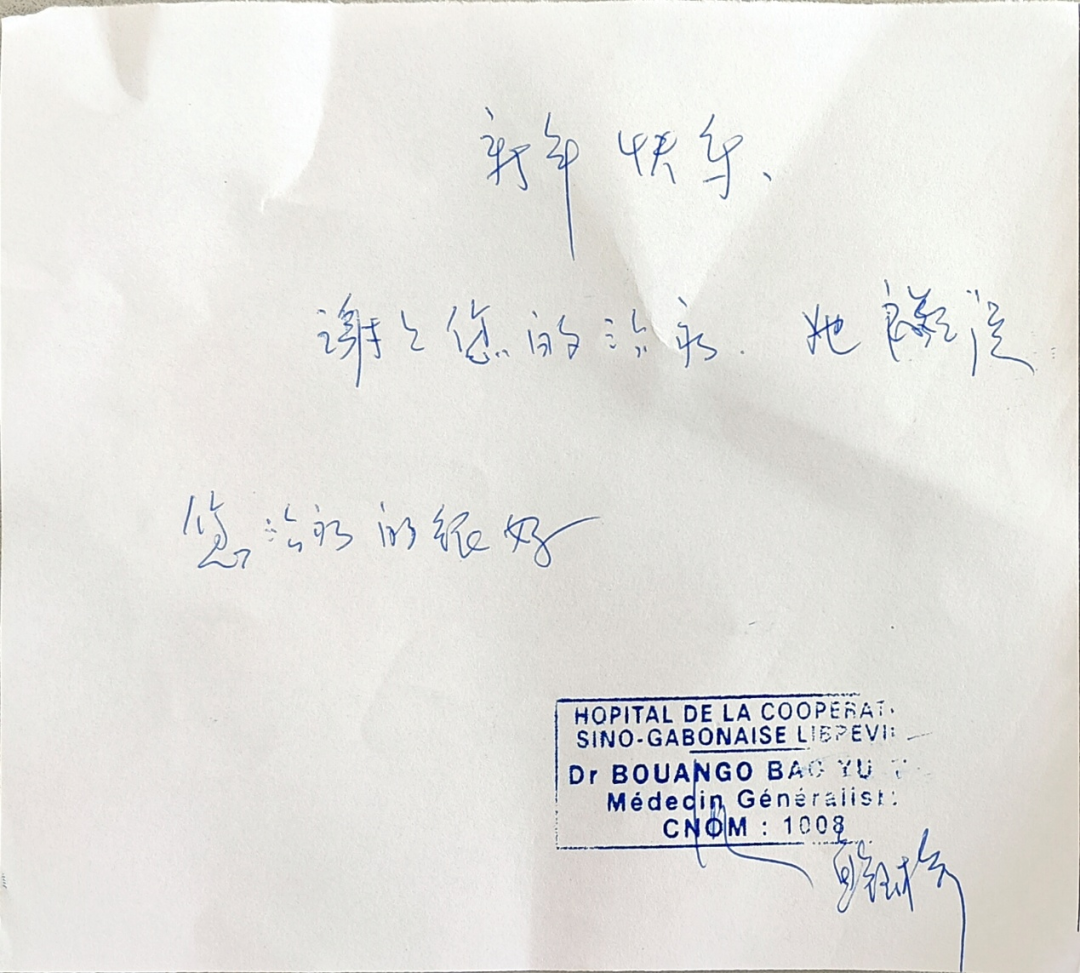 新年快乐、
谢谢您的治疗. 她
您治疗的很好
HOPITAL DE LA COOPERAT
SINO-GABONAISE LIBREVIL
Dr BOUANGO BAO YU
Médecin Généralist
CNOM : 1008